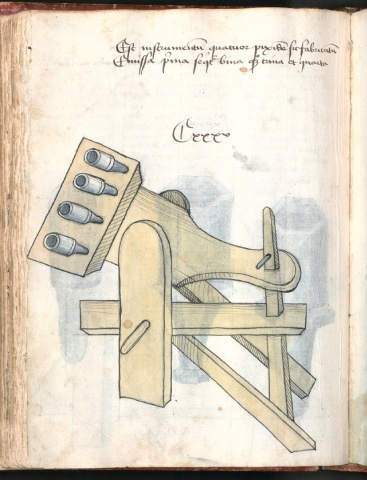 Est instrumentū quatuor pixidē sic fabricatū
Emissa p̄ma seqt̄ bina qꝫ trina et quarta
Cxxx